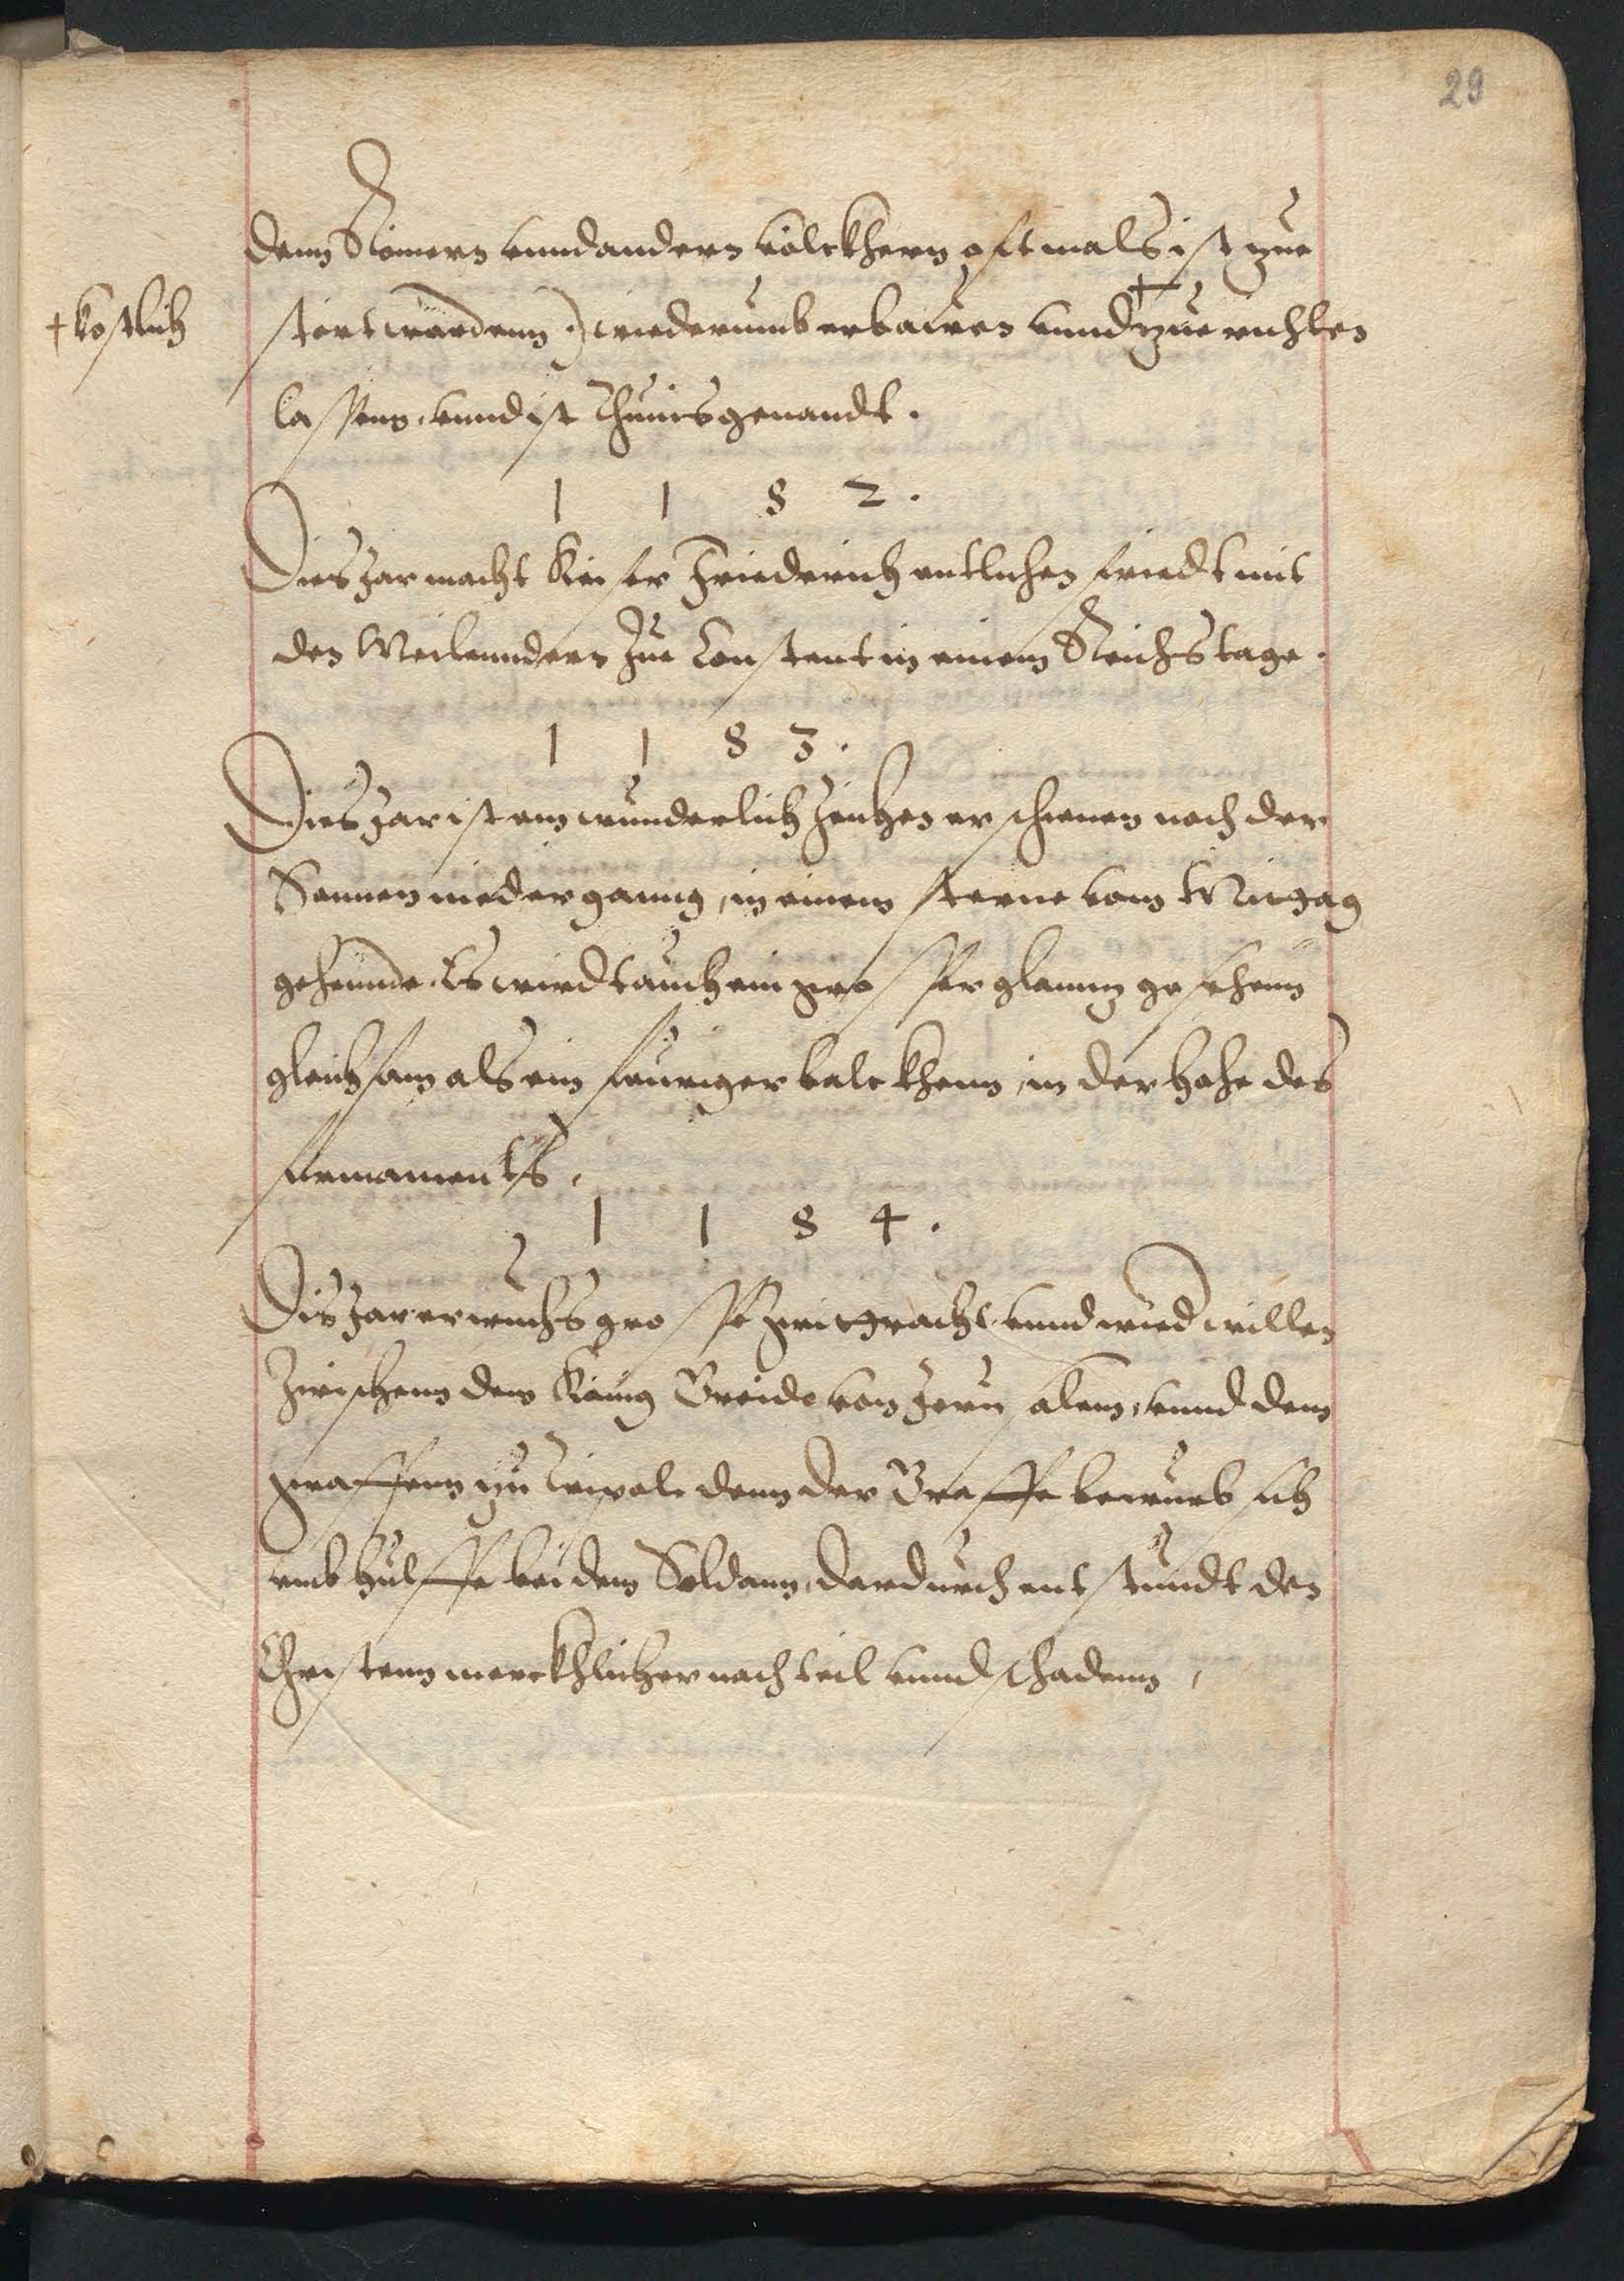 29
denn Römern vnnd andern völckhern oftmals ist zue
† kostlich
stört wordenn.) wiederumb erbawen vnnd † zue richten
lassenn, vnnd ist Thunis genandt.
1 1 8 2.
Dies Jar macht Keiser Friederich entlichen friedt mit
den Meilenndern Zue Constentz in einem Reichstage.
1 1 8 3.
Dies Jar ist ein wunderlich Zeichen erschienen nach der
Sonnen niedergang, in einem sterne vom Mittag
gehennde. Es wirdt auch ein grosser glanntz gesehenn
gleichsam als ein feuriger balckhenn, in der hohe des
firmaments.
1 1 8 4.
Dis Jar erwuchs grosse zwitracht vnnd wied willen
Zwischenn dem König Gwido von Jerusalem, vnnd dem
graffenn zu Tripol. denn der Graffe bewurb sich
vmb hülffe bei dem Soldann, dardurch entstundt den
Christenn merckhlicher nachteil vnnd schadenn,